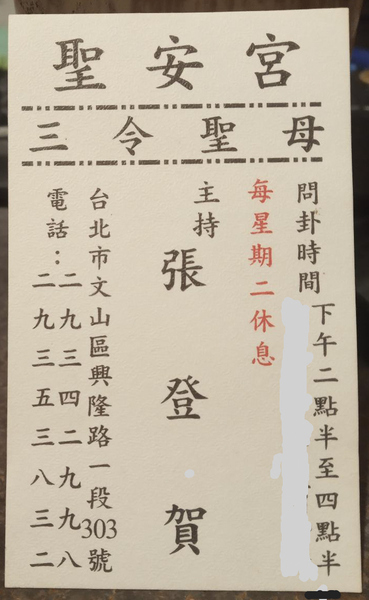 聖安宮
三令聖母
問卦時間
下午二點半至四點半
每星期二休息
主持
張登賀
台北市文山區興隆路一段303號
電話：
二九三四二九九八
二九三五三八三二